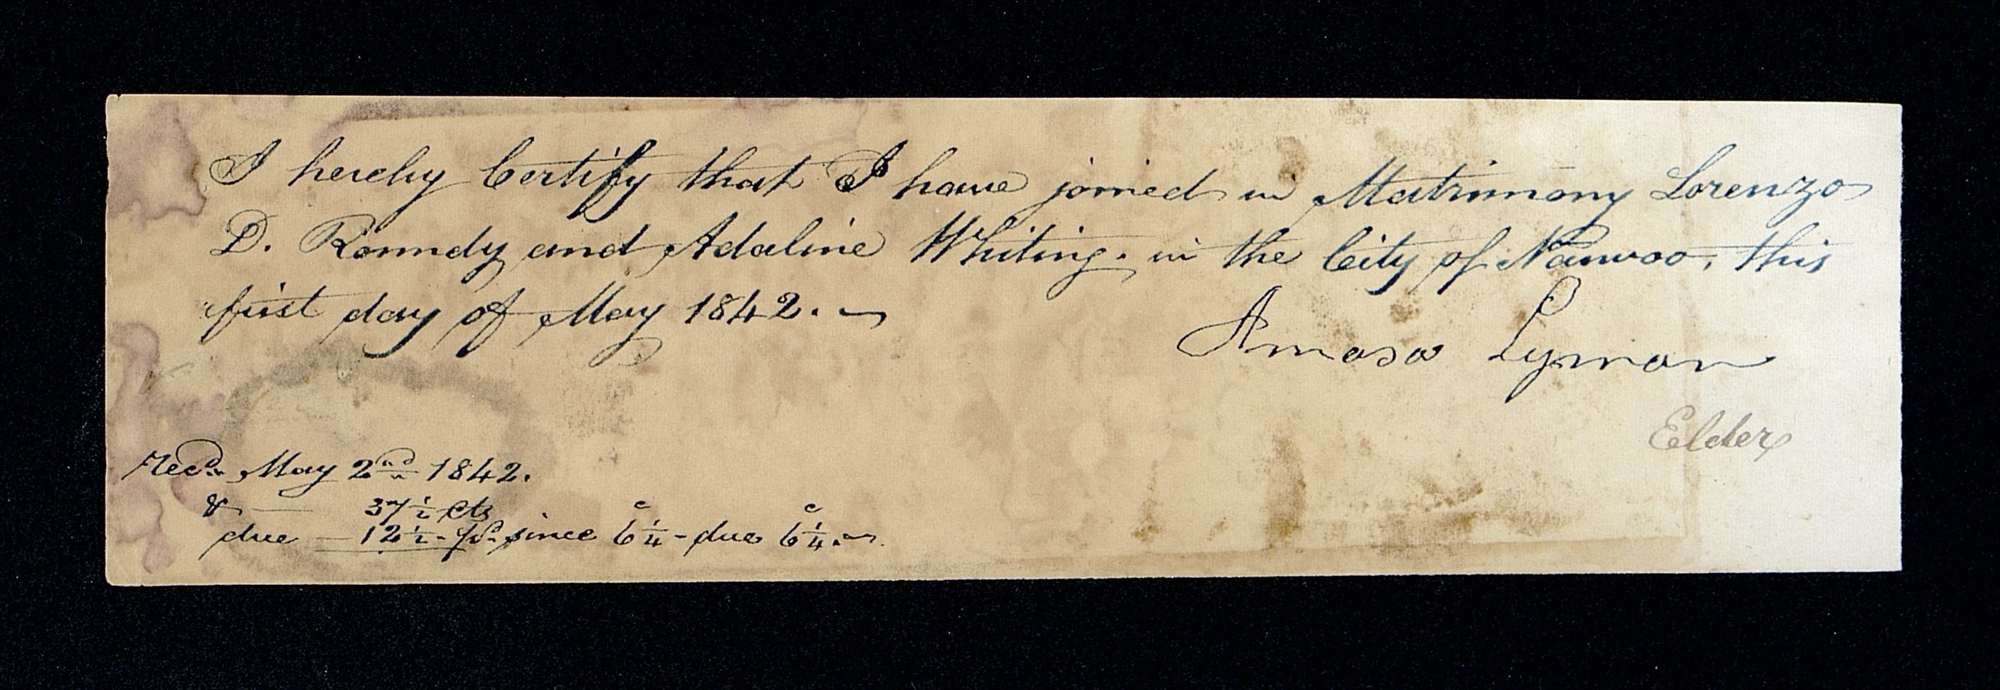 I hereby Certify that I have joined in Matrimony Lorenzo
D. Romndy and Adaline Whiting. in the City of Nauvoo, this
first day of May 1842.
Amasa Lyman
Elder
recd. May 2nd 1842.
& — 37 1/2 cts
due — 12 1/2 - pd. since 6 1/4 c - due 6 1/4 c.